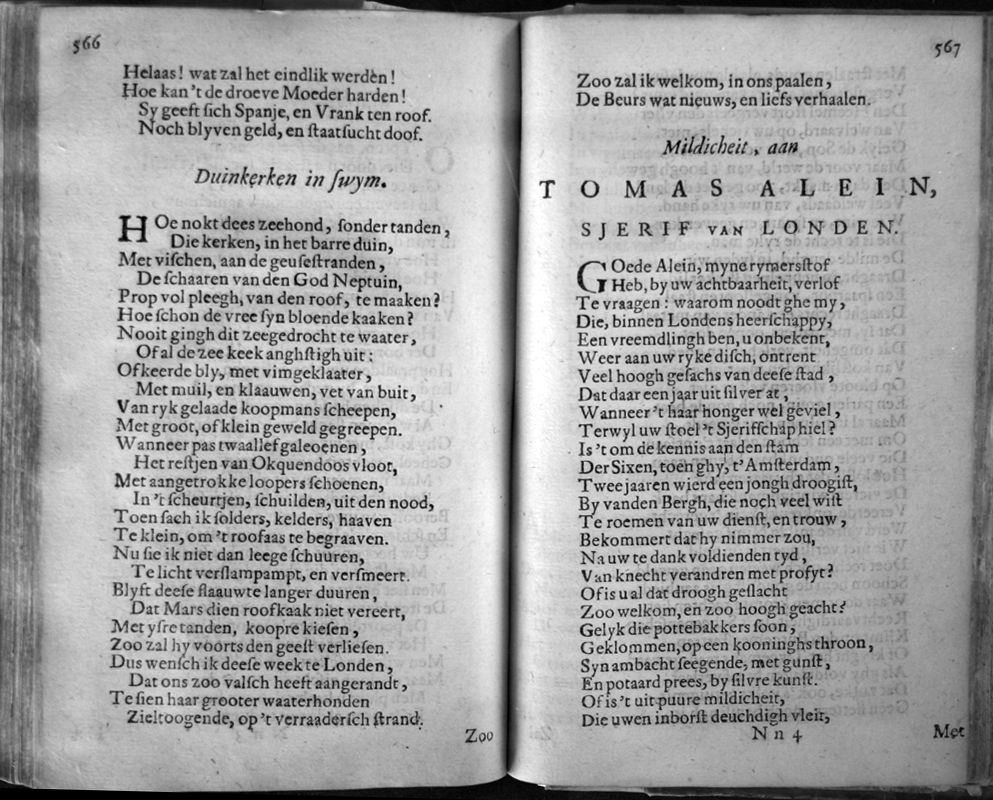 566
Helaas! wat zal het eindlik werden!
Hoe kan 't de droeve Moeder harden!
Sy geeft sich Spanje, en Vrank ten roof.
Noch blyven geld, en staatsucht doof.
Duinkerken in swym.
HOe nokt dees zeehond, sonder tanden,
Die kerken, in het barre duin,
Met vischen, aan de geusestranden,
De schaaren van den God Neptuin,
Prop vol pleegh, van den roof, te maaken?
Hoe schon de vree syn bloende kaaken?
Nooit gingh dit zeegedrocht te waater,
Of al de zee keek anghstigh uit:
Of keerde bly, met vimgeklaater,
Met muil, en klaauwen, vet van buit,
Van ryk gelaade koopmans scheepen,
Met groot, of klein geweld gegreepen.
Wanneer pas twaallef galeoenen,
Het restjen van Okquendoos vloot,
Met aangetrokke loopers schoenen,
In 't scheurtjen, schuilden, uit den nood,
Toen sach ik solders, kelders, haaven
Te klein, om 't roofaas te begraaven.
Nu sie ik niet dan leege schuuren,
Te licht verslampampt, en versmeert.
Blyft deese slaauwte langer duuren,
Dat Mars dien roofkaak niet vereert,
Met ysre tanden, koopre kiesen,
Zoo zal hy voorts den geest verliesen.
Dus wensch ik deese week te Londen,
Dat ons zoo valsch heeft aangerandt,
Te sien haar grooter waaterhonden
Zieltoogende, op 't verraadersch strand.
Zoo
567
Zoo zal ik welkom, in ons paalen,
De Beurs wat nieuws, en liefs verhaalen.
Mildicheit, aan
TOMAS ALEIN,
SJERIF VAN LONDEN.
GOede Alein, myne rymersstof
Heb, by uw achtbaarheit, verlof
Te vraagen: waarom noodt ghe my,
Die, binnen Londens heerschappy,
Een vreemdlingh ben, u onbekent,
Weer aan uw ryke disch, ontrent
Veel hoogh gesachs van deese stad,
Dat daar een jaar uit silver at,
Wanneer 't haar honger wel geviel,
Terwyl uw stoel 't Sjerifschap hiel?
Is 't om de kennis aan den stam
Der Sixen, toen ghy, t'Amsterdam,
Twee jaaren wierd een jongh droogist,
By vanden Bergh, die noch veel wist
Te roemen van uw dienst, en trouw,
Bekommert dat hy nimmer zou,
Na uw te dank voldienden tyd,
Van knecht verandren met profyt?
Of is u al dat droogh geslacht
Zoo welkom, en zoo hoogh geacht?
Gelyk die pottebakkers soon,
Geklommen, op een kooninghs throon,
Syn ambacht seegende, met gunst,
En potaard prees, by silvre kunst.
Of is 't uit puure mildicheit,
Die uwen inborst deuchdigh vleit,
Nn 4
Met